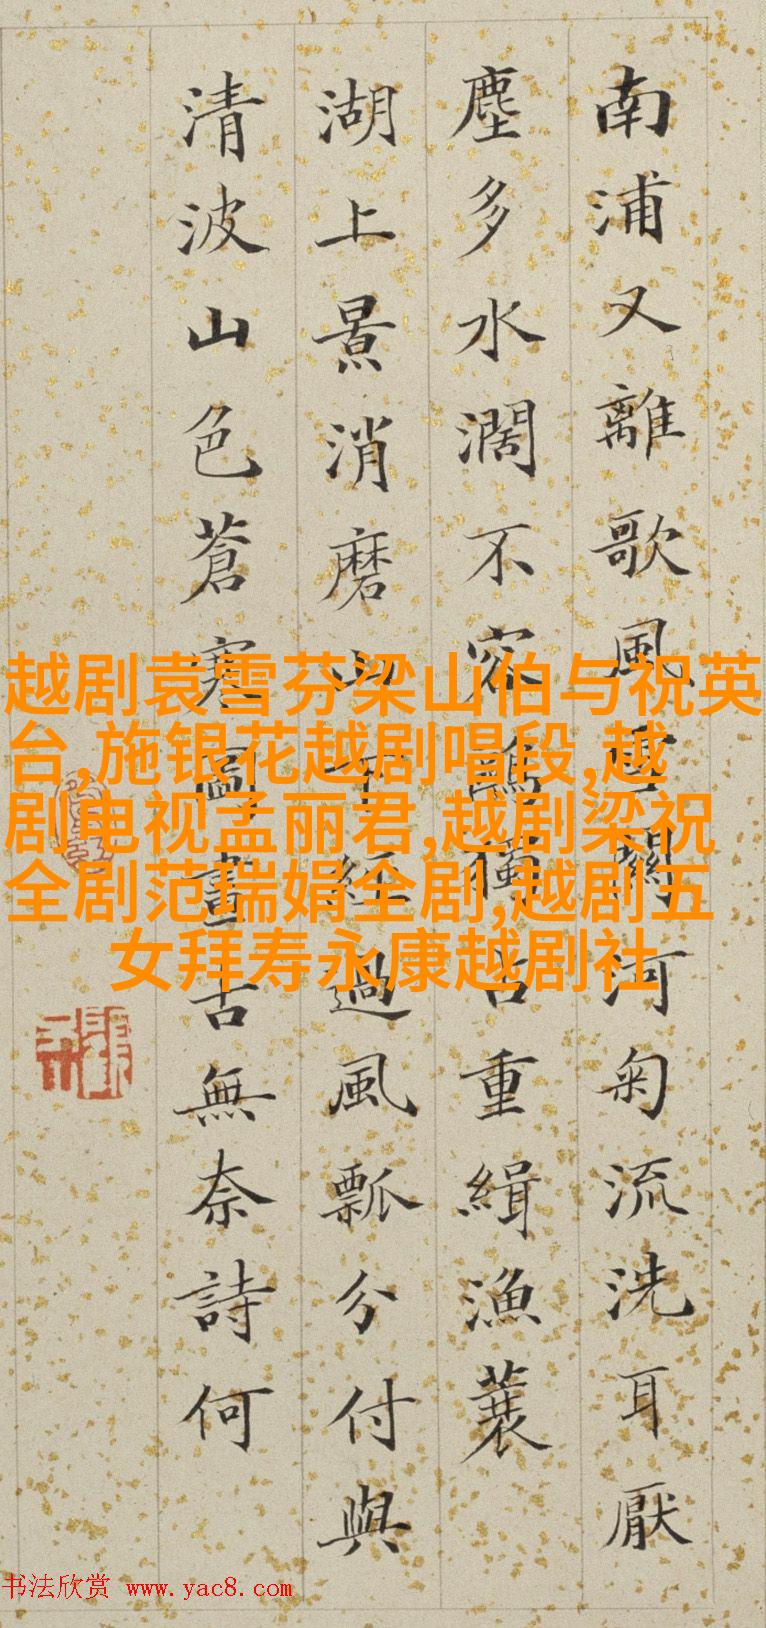 南浦又離歌風雪關河匊流洗耳厭
塵多水濶不容鷗獨占重緝漁蓑
湖上景消磨山下經過風瓢分付與
清波山色蒼寒圖畫古無奈詩何
越剧袁雪芬梁山伯与祝英
台,施银花越剧唱段,越
剧电视孟丽君,越剧梁祝
全剧范瑞娟全剧,越剧五
女拜寿永康越剧社
书法欣赏 www.yac8.com